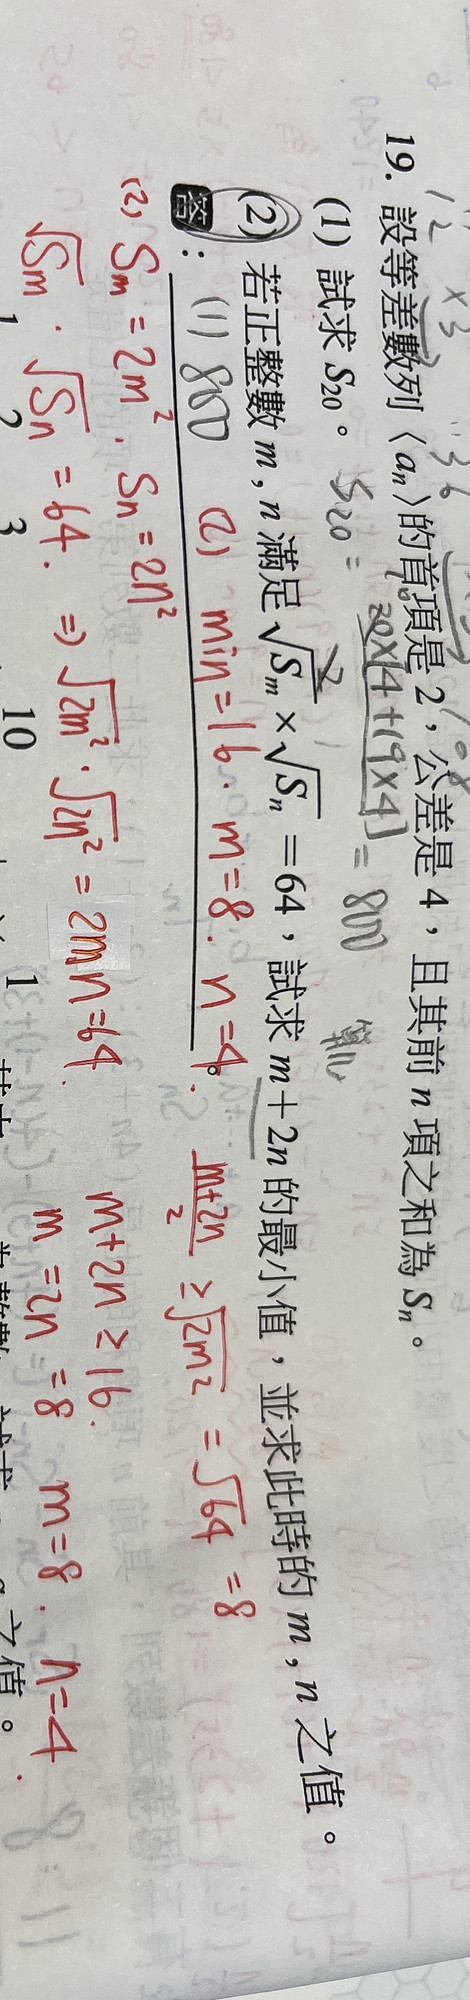 19. 設等差數列〈aₙ〉的首項是 2，公差是 4，且其前 n 項之和為 Sₙ。
(1) 試求 S₂₀。 S₂₀ = 20×[4+19×4] / 2 = 800
(2) 若正整數 m , n 滿足 √Sₘ × √Sₙ = 64，試求 m + 2n 的最小值，並求此時的 m , n 之值。
答：(1) 800 (2) min=16. m=8. n=4。
(m+2n)/2 ≥ √2m2 = √64 = 8
(2) Sₘ = 2m². Sₙ = 2n²
m+2n ≥ 16.
√Sₘ · √Sₙ = 64. ⇒ √2m² · √2n² = 2mn = 64.
m = 2n = 8 m = 8. n = 4.